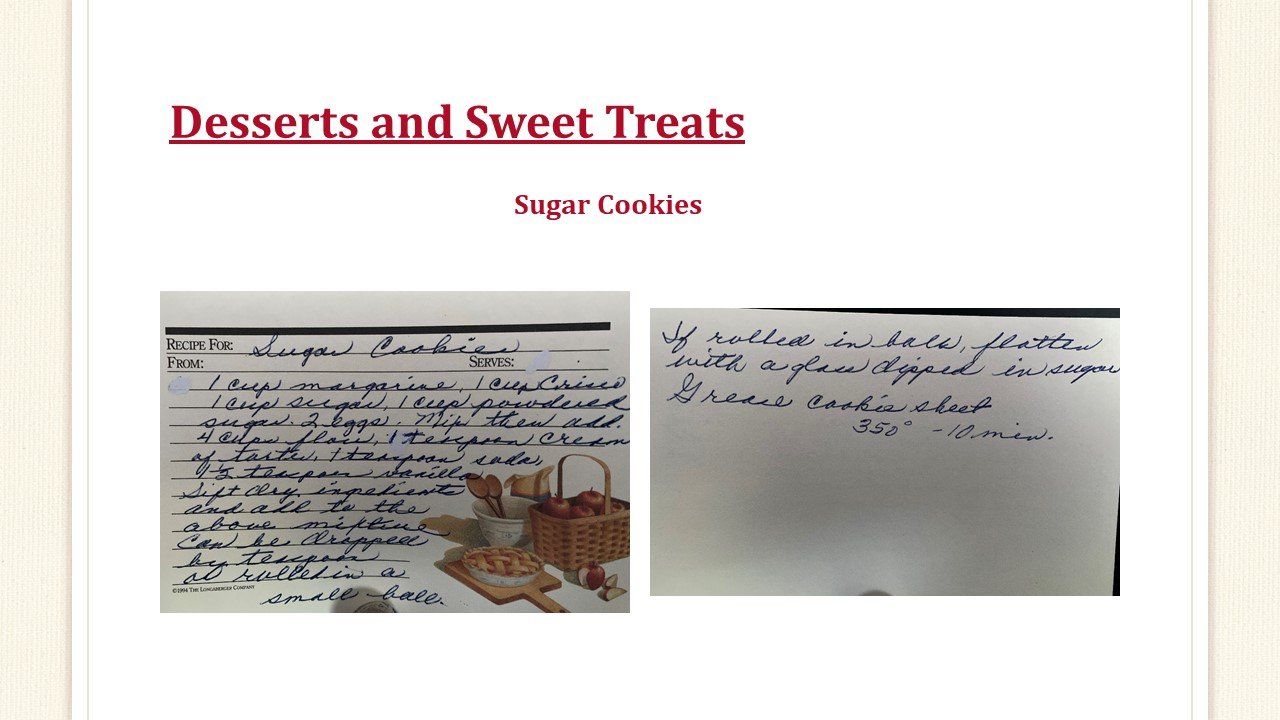 Desserts and Sweet Treats
Sugar Cookies
RECIPE FOR: Sugar Cookies
FROM: SERVES:
1 cup margarine, 1 cup Crisco
1 cup sugar, 1 cup powdered
sugar. 2 eggs. Mix then add.
4 cups flour, 1 teaspoon cream
of tarter, 1 teaspoon soda,
teaspoon vanilla
Sift dry ingredients
and add to the
above mixture
Can be dropped
by teaspoon
or rolled in a
©1994 THE LONGABERGER COMPANY
small ball.
If rolled in balls, flatten
with a glass dipped in sugar
Grease cookie sheet
350° - 10 min.